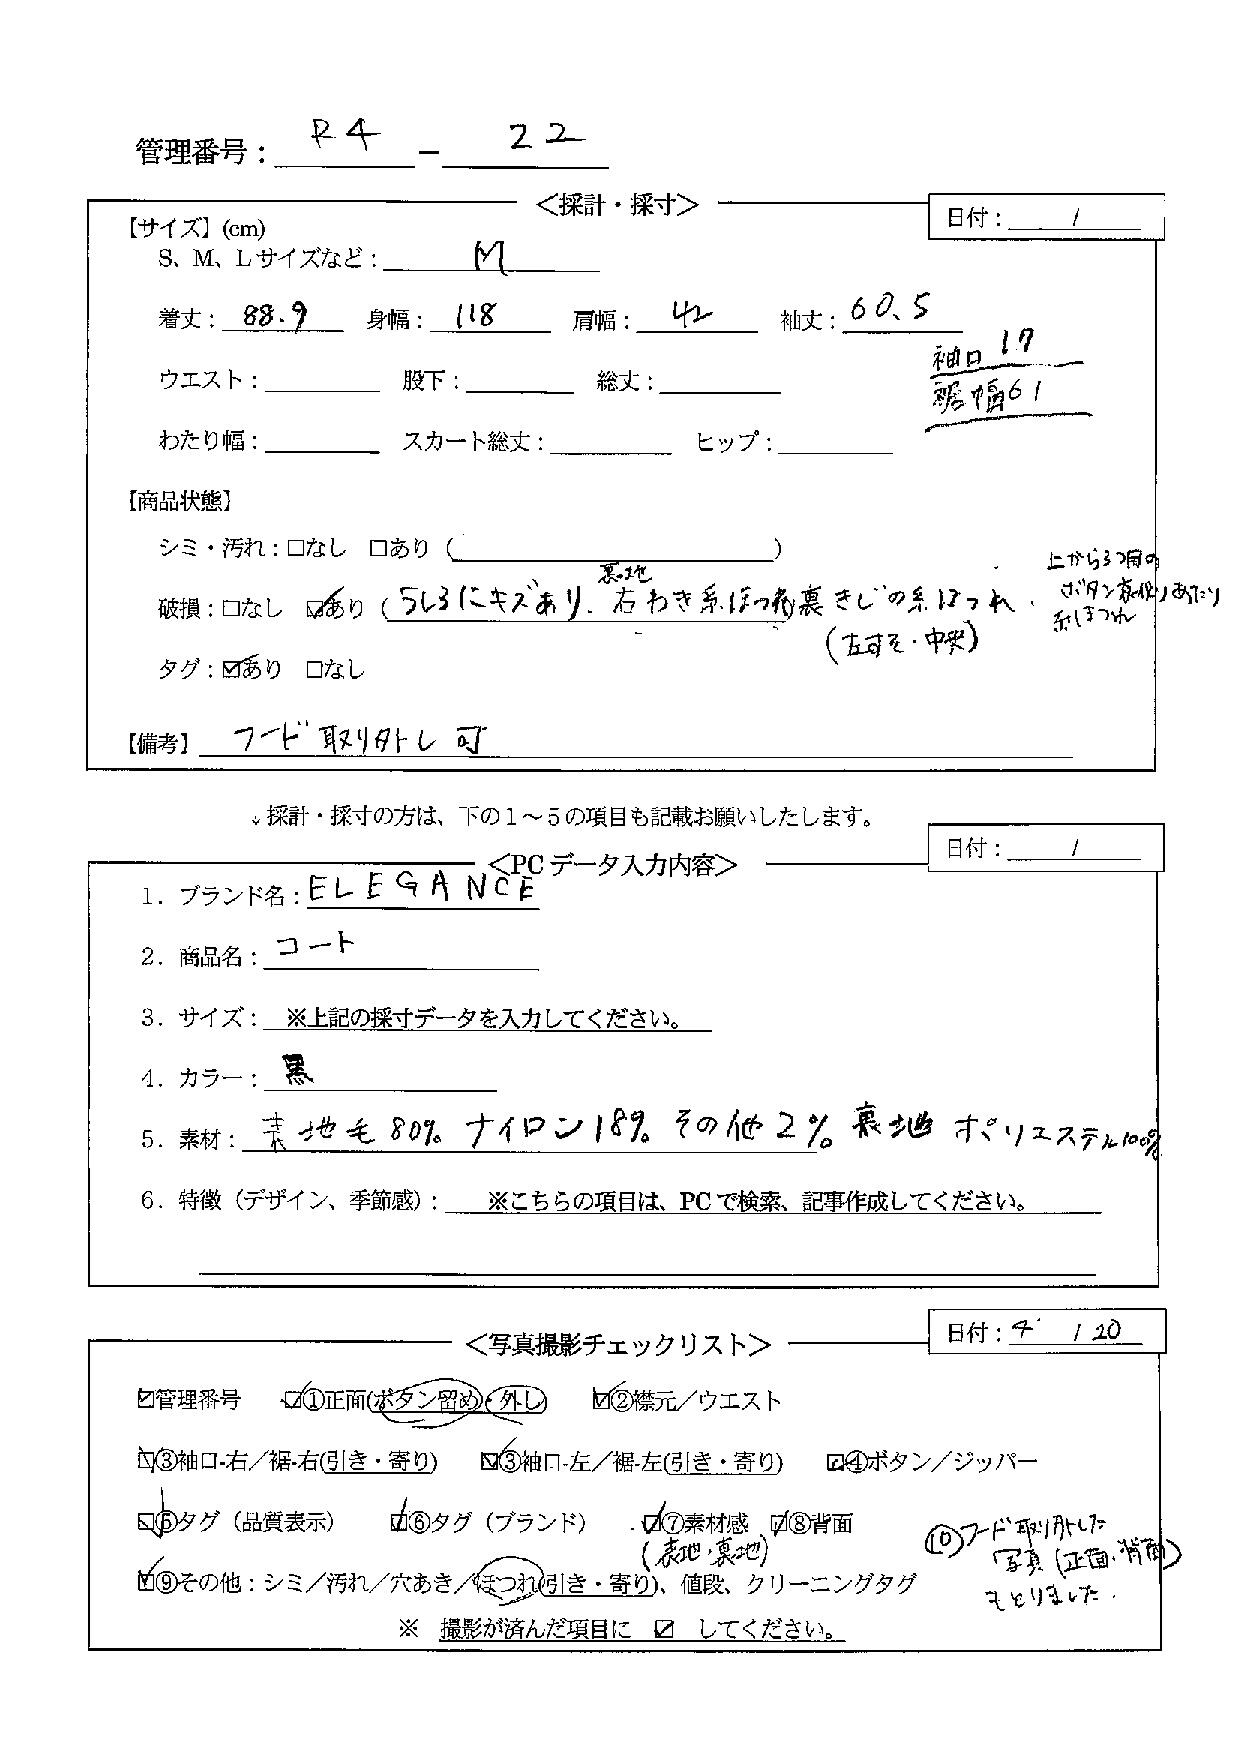 管理番号：R4－22
＜採計・採寸＞
日付： /
【サイズ】(cm)
S、M、Lサイズなど：M
着丈：88.9 身幅：118 肩幅：42 袖丈：60.5
袖口 17
ウエスト： 股下： 総丈：
裾幅61
わたり幅： スカート総丈： ヒップ：
【商品状態】
シミ・汚れ：□なし □あり（ ）
上から3つ目の
裏地
破損：□なし ☑あり（うしろにキズあり、右わき糸ほつれ）裏きじの糸ほつれ．
ボタン裏側りあたり
糸ほつれ
(左すそ・中央)
タグ：☑あり □なし
【備考】フード取り外し可
↓採計・採寸の方は、下の１～５の項目も記載お願いしたします。
日付： /
＜PCデータ入力内容＞
1．ブランド名：ELEGANCE
2．商品名：コート
3．サイズ：※上記の採寸データを入力してください。
4．カラー：黒
5．素材：表地毛80% ナイロン18% その他2% 裏地 ポリエステル100%
6．特徴（デザイン、季節感）：※こちらの項目は、PCで検索、記事作成してください。
日付：4 / 20
＜写真撮影チェックリスト＞
☑管理番号 ☑①正面(ボタン留め・外し) ☑②襟元／ウエスト
☑③袖口-右／裾-右(引き・寄り) ☑③袖口-左／裾-左(引き・寄り) ☑④ボタン／ジッパー
☑⑤タグ（品質表示） ☑⑥タグ（ブランド） ☑⑦素材感 ☑⑧背面
(表地・裏地)
⑩フード取り外した
写真(正面・背面)
もとりました．
☑⑨その他：シミ／汚れ／穴あき／ほつれ(引き・寄り)、値段、クリーニングタグ
※ 撮影が済んだ項目に ☑ してください。